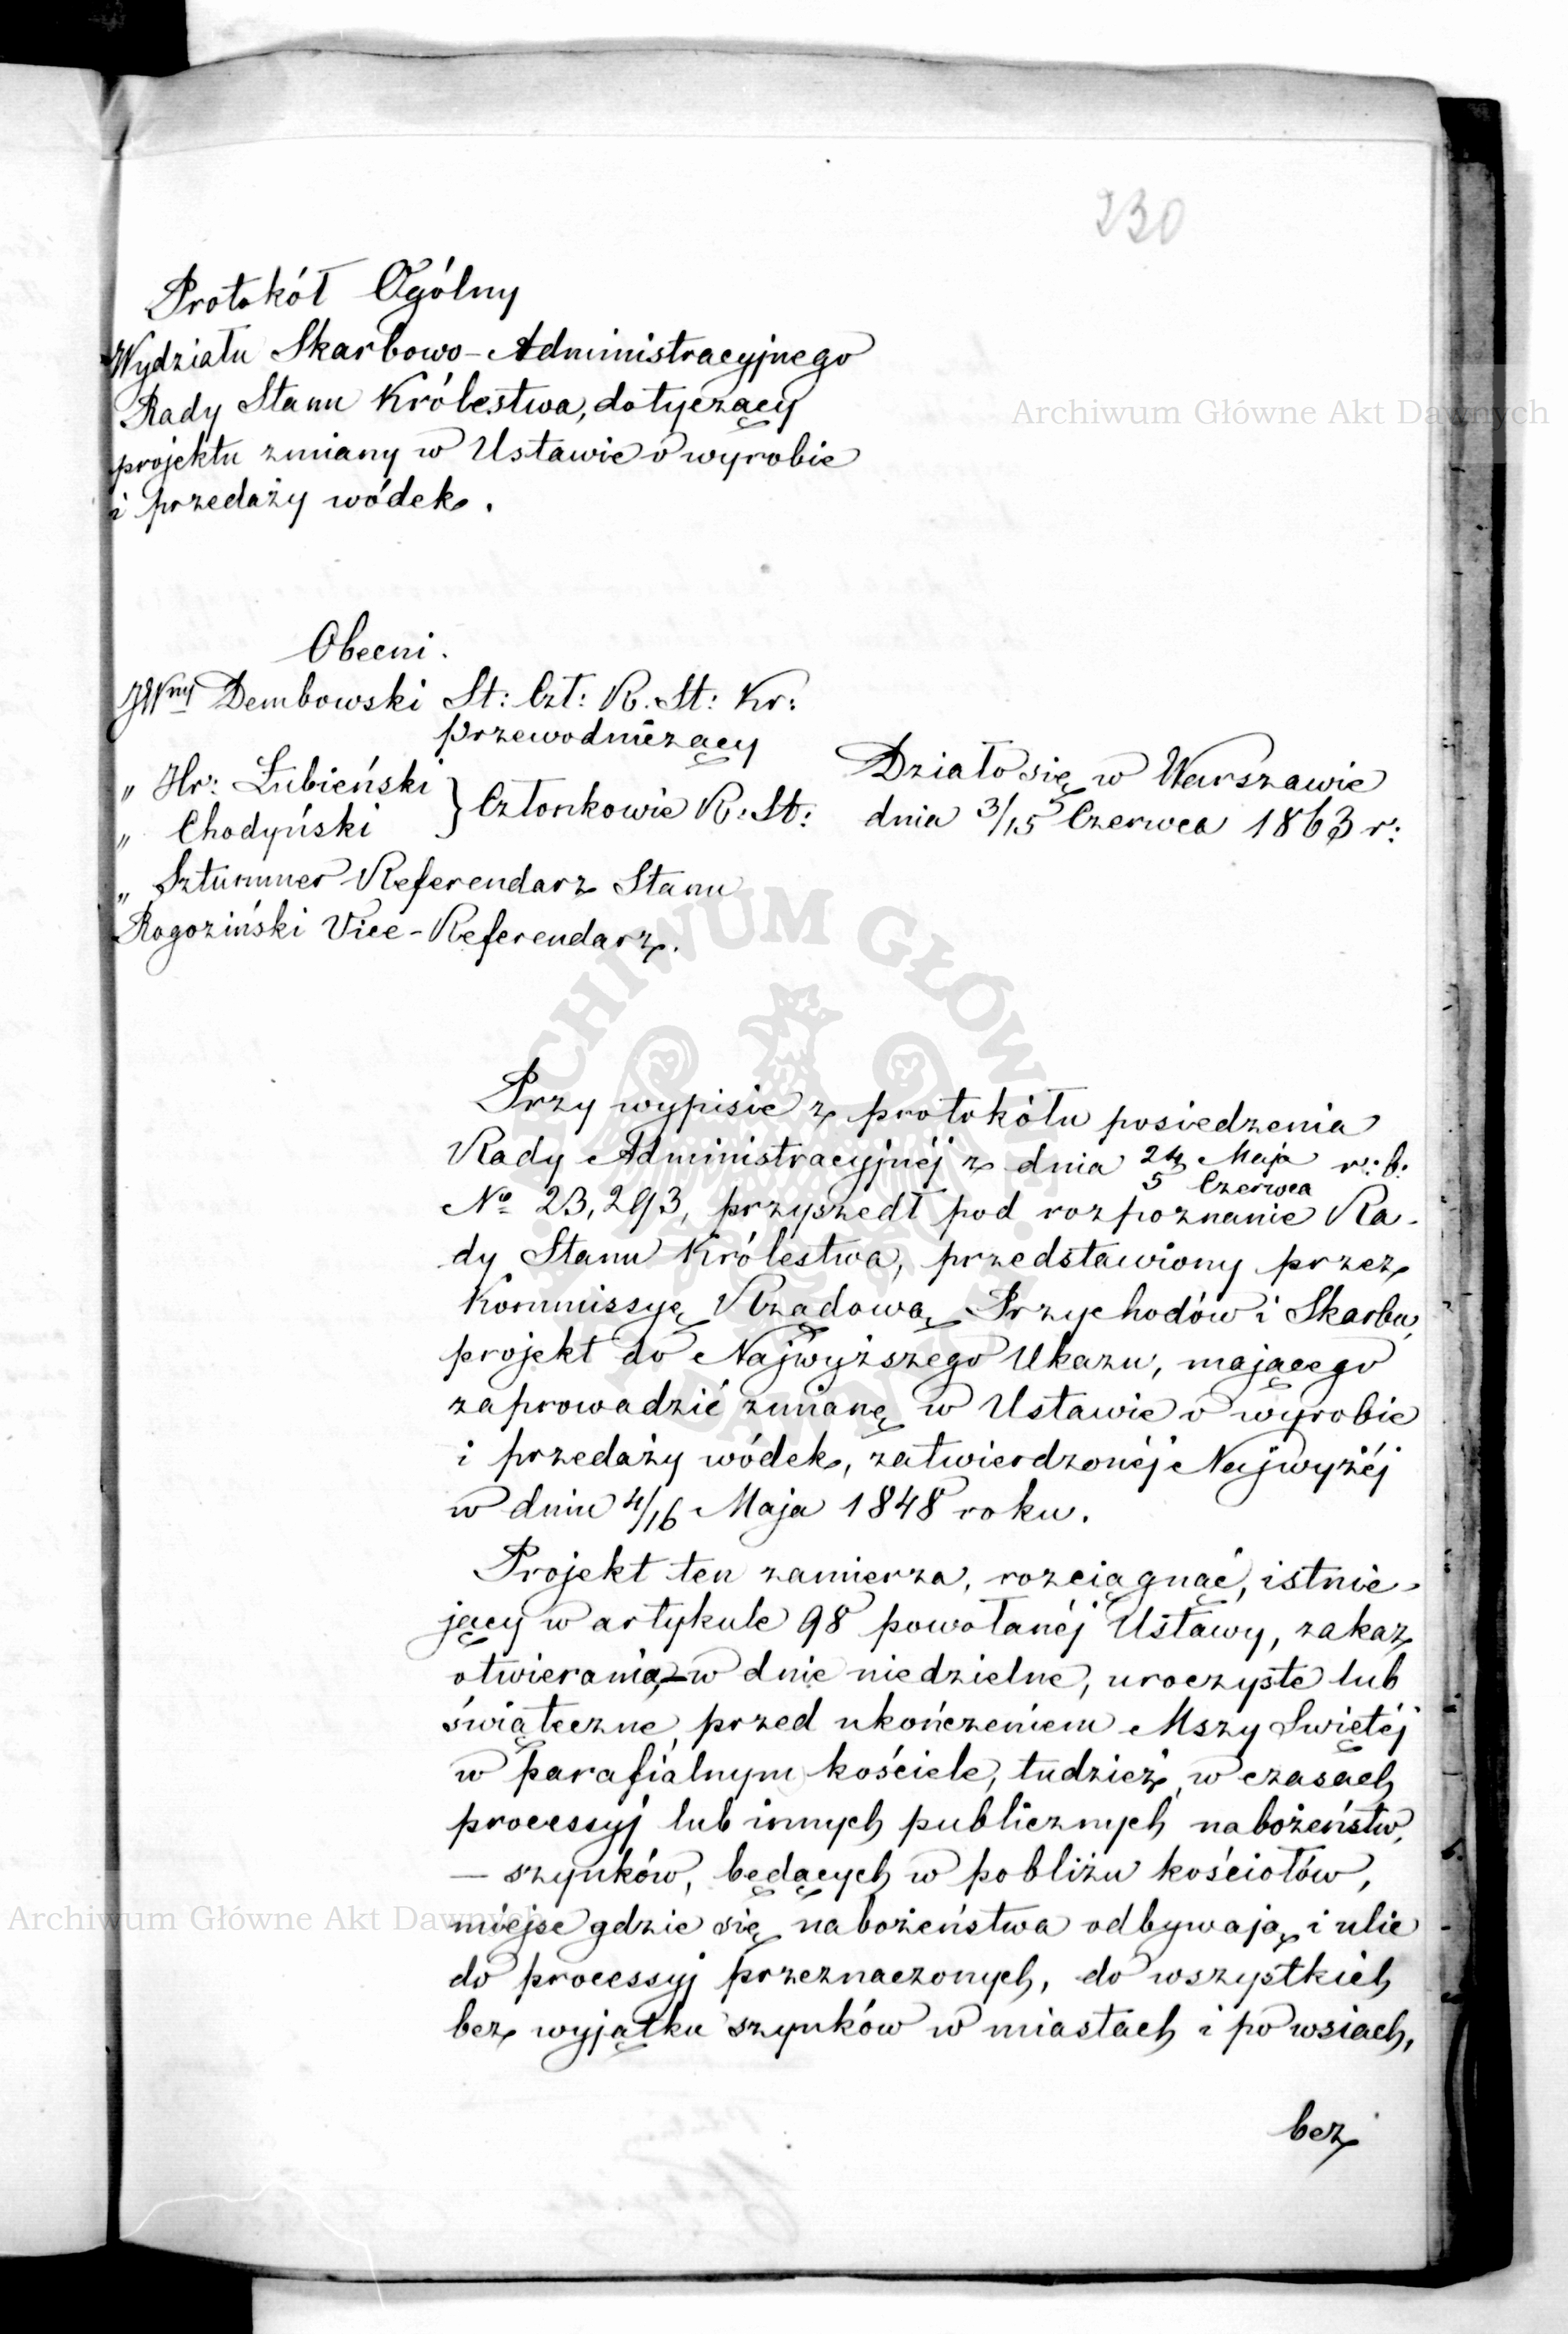 230
Protokół Ogólny
Wydziału Skarbowo-Administracyjnego
Rady Stanu Królestwa, dotyczący
projektu zmiany w Ustawie o wyrobie
i przedaży wódek.
Obecni.
JWny Dembowski St: Czł: R. St: Kr:
przewodniczący
" Hr: Łubieński } Członkowie R: St:
" Chodyński
" Szturmer Referendarz Stanu
Rogoziński Vice-Referendarz.
Działo się w Warszawie
dnia 3/15 Czerwca 1863 r:
Przy wypisie z protokółu posiedzenia
Rady Administracyjnéj z dnia 24 Maja / 5 Czerwca r: b:
No 23,293, przyszedł pod rozpoznanie Ra-
dy Stanu Królestwa, przedstawiony przez
Kommissyę Rządową Przychodów i Skarbu,
projekt do Najwyższego Ukazu, mającego
zaprowadzić zmianę w Ustawie o wyrobie
i przedaży wódek, zatwierdzonéj Najwyżéj
w dniu 4/16 Maja 1848 roku.
Projekt ten zamierza, rozciągnąć, istnie-
jący w artykule 98 powołanéj Ustawy, zakaz
otwierania, w dnie niedzielne, uroczyste lub
świąteczne, przed ukończeniem Mszy Swiętéj
w parafialnym kościele, tudzież, w czasach
processyj lub innych publicznych nabożeństw,
— szynków, będących w pobliżu kościołów,
miejsc gdzie się nabożeństwa odbywają i ulic
do processyj przeznaczonych, do wszystkich
bez wyjątku szynków w miastach i po wsiach,
bez
Archiwum Główne Akt Dawnych
Archiwum Główne Akt Dawnych